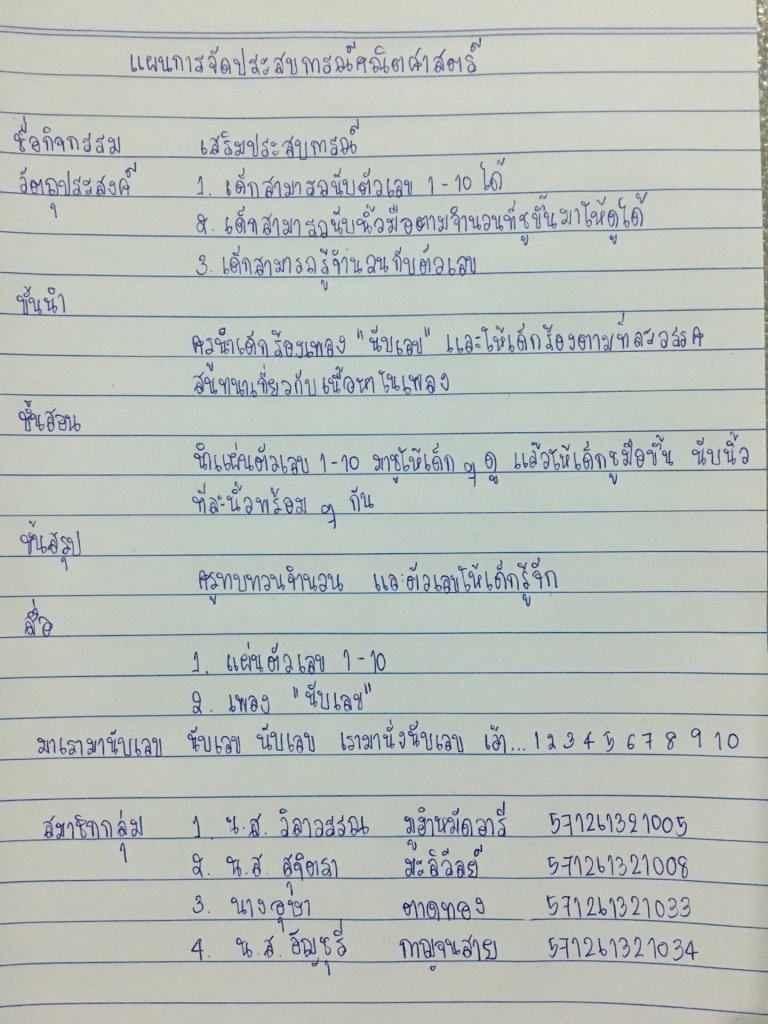 แผนการจัดประสบการณ์คณิตศาสตร์
ชื่อกิจกรรม เสริมประสบการณ์
วัตถุประสงค์ 1. เด็กสามารถนับตัวเลข 1-10 ได้
2. เด็กสามารถนับนิ้วมือตามจำนวนที่ชูขึ้นมาให้ดูได้
3. เด็กสามารถรู้จำนวนกับตัวเลข
ขั้นนำ
ครูนำเด็กร้องเพลง "นับเลข" และให้เด็กร้องตามทีละวรรค
สนทนาเกี่ยวกับเนื้อหาในเพลง
ขั้นสอน
นำแผ่นตัวเลข 1-10 มาชูให้เด็ก ๆ ดู แล้วให้เด็กชูมือขึ้น นับนิ้ว
ทีละนิ้วพร้อม ๆ กัน
ขั้นสรุป
ครูทบทวนจำนวน และตัวเลขให้เด็กรู้จัก
สื่อ
1. แผ่นตัวเลข 1-10
2. เพลง "นับเลข"
มาเรามานับเลข นับเลข นับเลข เรามานั่งนับเลข เอ้า... 1 2 3 4 5 6 7 8 9 10
สมาชิกกลุ่ม 1. น.ส. วิลาวรรณ มูฮำหมัดอารี 571261321005
2. น.ส. สุจิตรา มะลิวัลย์ 571261321008
3. นางอุษา ตาดทอง 571261321033
4. น.ส. ธัญชุรี กาญจนสาย 571261321034